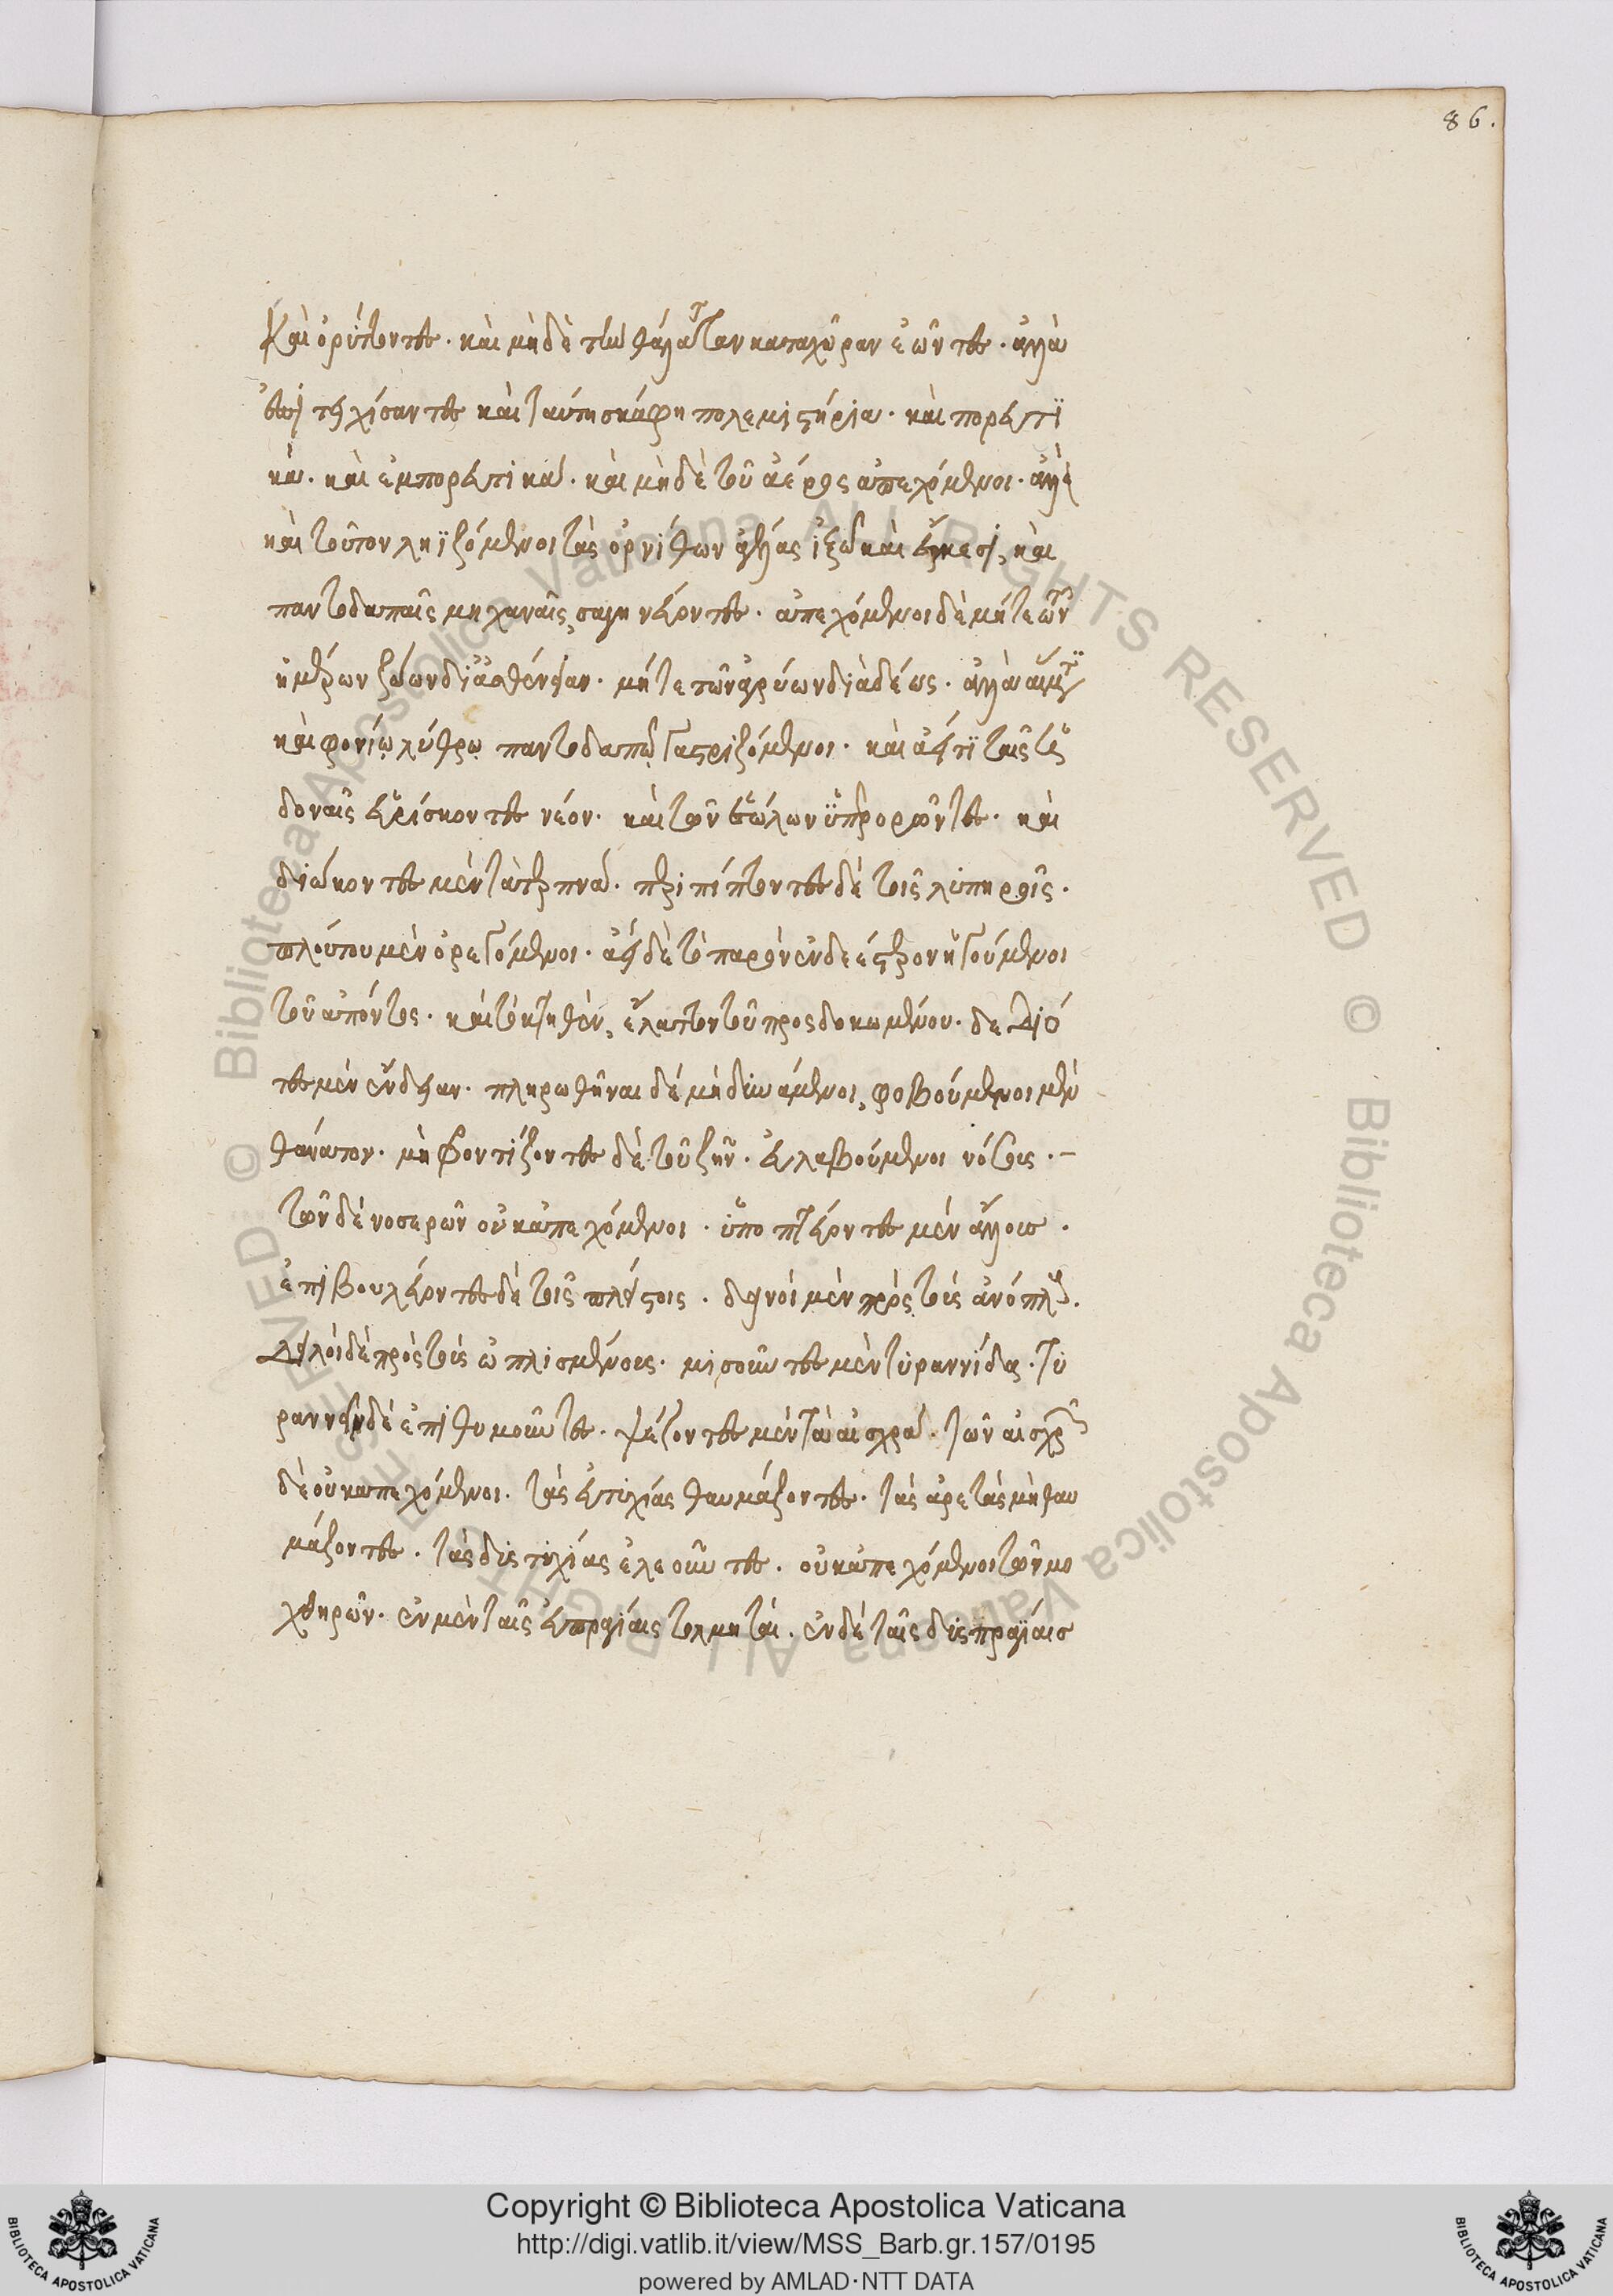 86.
καὶ ὀρύττοντες. καὶ μηδὲ τὴν θάλατταν κατὰ χώραν ἐῶντες. ἀλλὰ
ἐπιτειχίσαντες καὶ ταύτῃ σκάφη πολεμιστήρια. καὶ πορευτι
κὰ. καὶ ἐμπορευτικά. καὶ μηδὲ τοῦ ἀέρος ἀπεχόμενοι. ἀλλὰ
καὶ τοῦτον ληϊζόμενοι τὰς ὀρνίθων ἀγέλας ἰξῷ καὶ ἕρκεσι, καὶ
παντοδαπαῖς μηχαναῖς, σαγηνεύοντες. ἀπεχόμενοι δὲ μήτε τῶν
ἡμέρων ζώων δι' ἀσθένειαν. μήτε τῶν ἀγρίων διὰ δέος. ἀλλὰ αἵματι
καὶ φονίῳ λύθρῳ παντοδαπῷ γαστριζόμενοι. καὶ ἀεί τι ταῖς ἡ
δοναῖς εὑρίσκοντες νέον. καὶ τῶν ἑώλων ὑπερορῶντες. καὶ
διώκοντες μὲν τὰ τερπνά. περιπίπτοντες δὲ τοῖς λυπηροῖς.
πλούτου μὲν ὀρεγόμενοι. ἀεὶ δὲ τὸ παρὸν ἐνδεέστερον ἡγούμενοι
τοῦ ἀπόντος. καὶ τὸ κτηθὲν, ἔλαττον τοῦ προσδοκωμένου. δεδιό
τες μὲν ἔνδειαν. πληρωθῆναι δὲ μὴ δυνάμενοι, φοβούμενοι μὲν
θάνατον. μὴ φροντίζοντες δὲ τοῦ ζῆν. εὐλαβούμενοι νόσους.
τῶν δὲ νοσερῶν οὐκ ἀπεχόμενοι. ὑποπτεύοντες μὲν ἄλλους.
ἐπιβουλεύοντες δὲ τοῖς πλείστοις. δεινοὶ μὲν πρὸς τοὺς ἀνόπλους.
δειλοὶ δὲ πρὸς τοὺς ὡπλισμένους. μισοῦντες μὲν τυραννίδα. τυ
ραννεῖν δὲ ἐπιθυμοῦντες. ψέγοντες μὲν τὰ αἰσχρά. τῶν αἰσχρῶν
δὲ οὐκ ἀπεχόμενοι. τὰς εὐτυχίας θαυμάζοντες. τὰς ἀρετὰς μὴ θαυ
μάζοντες. τὰς δυστυχίας ἐλεοῦντες. οὐκ ἀπεχόμενοι τῶν μο
χθηρῶν. ἐν μὲν ταῖς εὐπραγίαις τολμηταί. ἐν δὲ ταῖς δυσπραγίαις
Copyright © Biblioteca Apostolica Vaticana
http://digi.vatlib.it/view/MSS_Barb.gr.157/0195
powered by AMLAD·NTT DATA